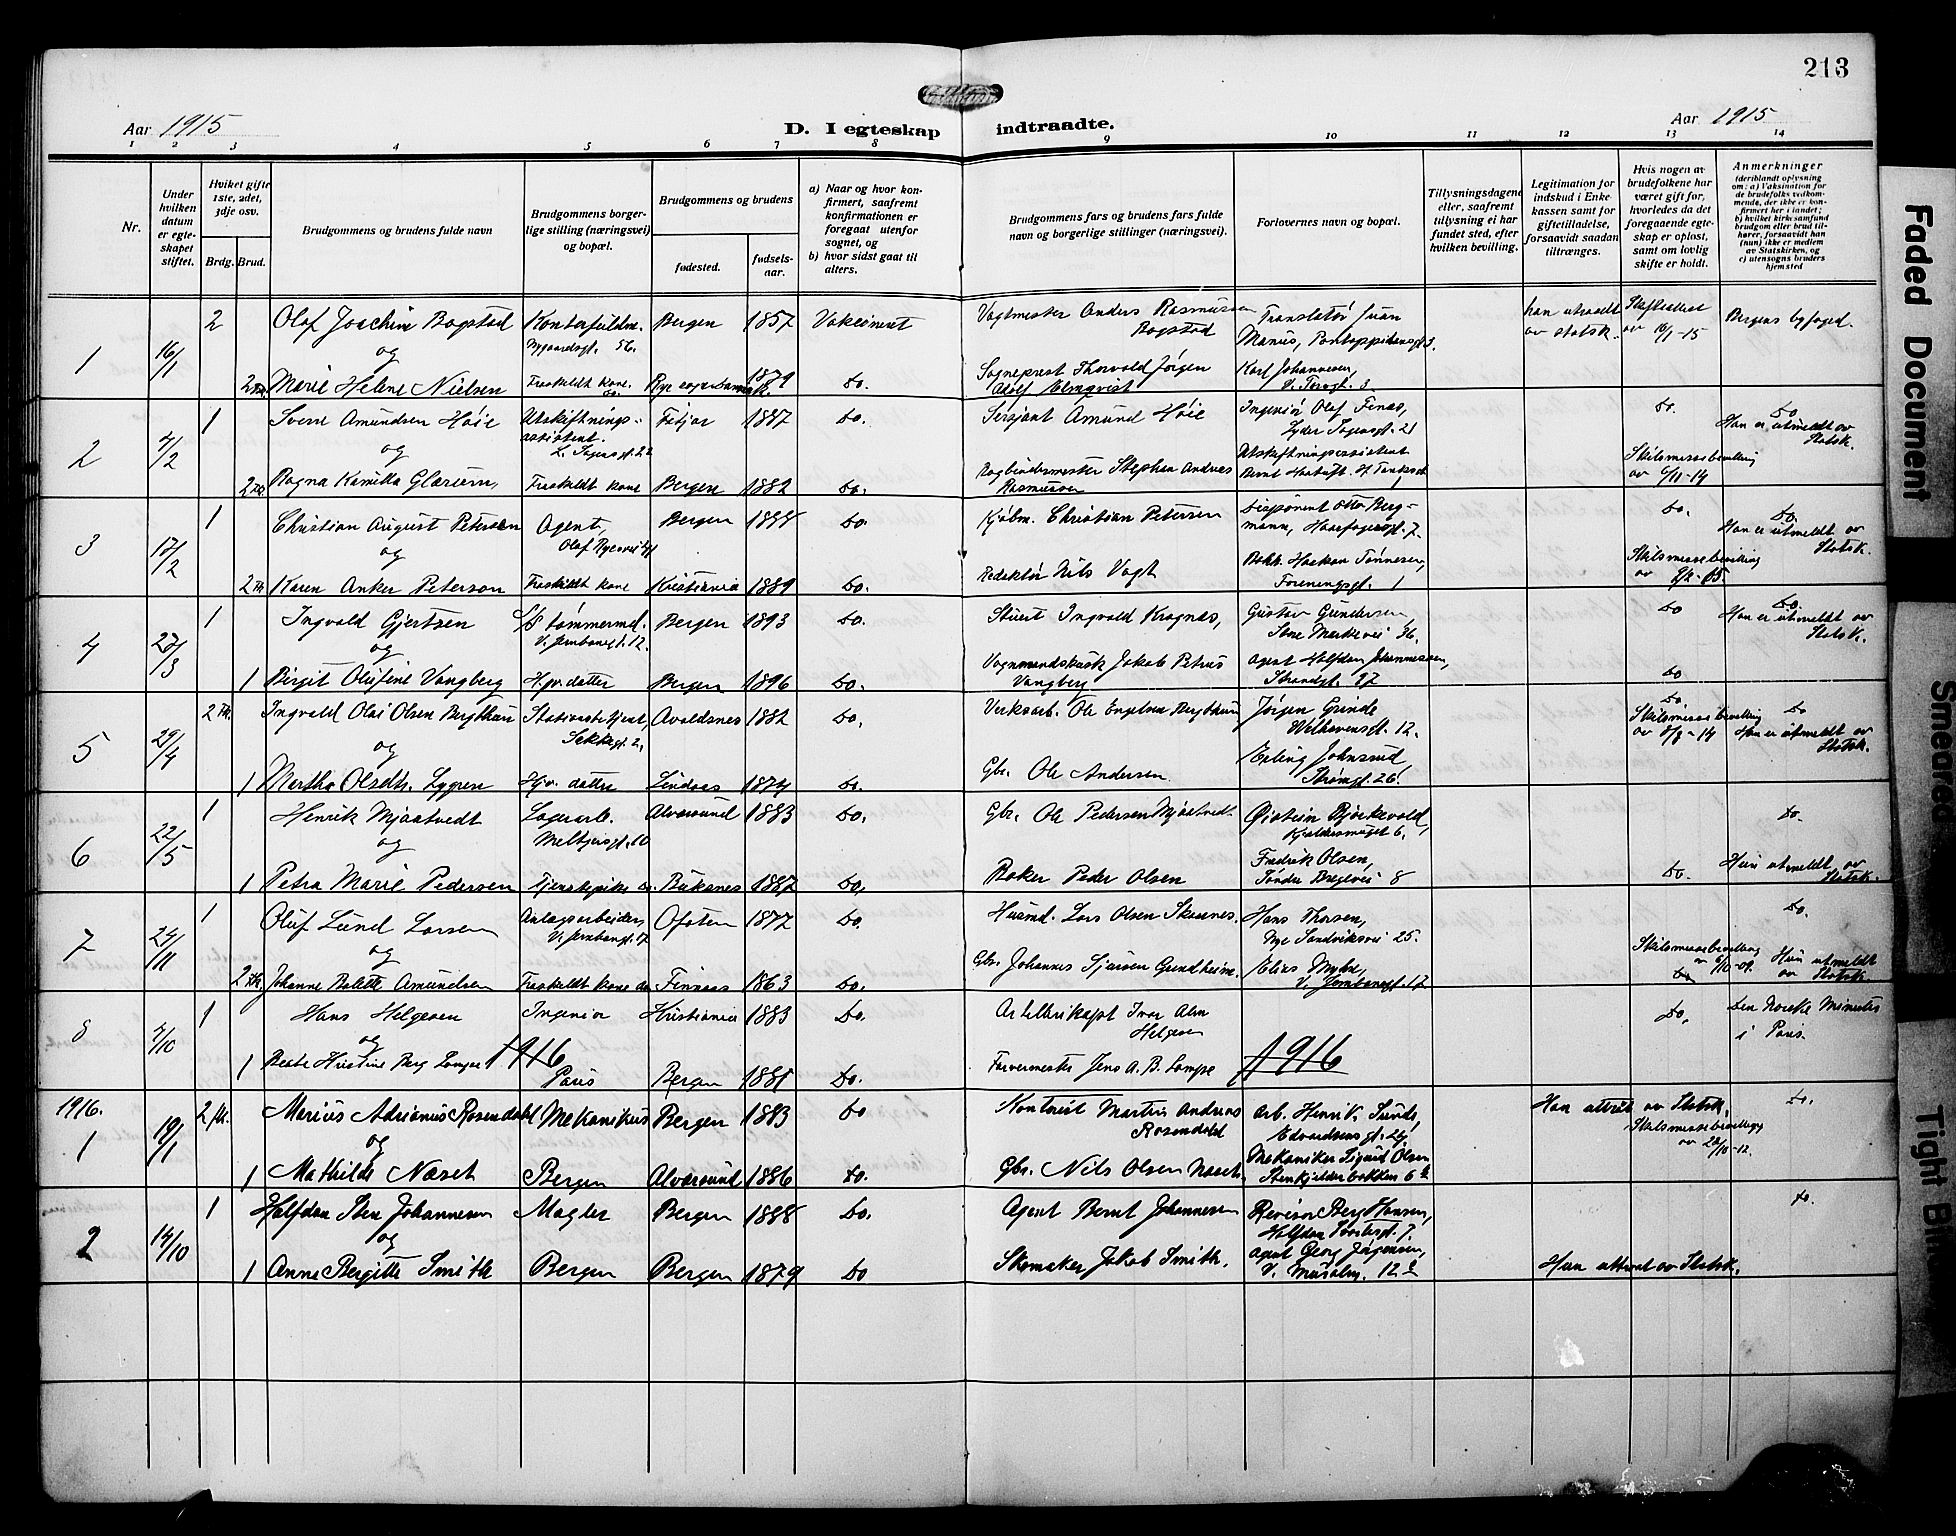 213
Aar 1915
D. I egteskap indtraadte.
Aar 1915
1 2 3 4 5 6 7 8 9 10 11 12 13 14
Nr.
Under hvilken datum er egteskapet stiftet.
Hviket gifte 1ste, 2det, 3dje osv.
Brdg. Brud.
Brudgommens og brudens fulde navn
Brudgommens borgerlige stilling (næringsvei) og bopæl.
Brudgommens og brudens
fødested.
fødselsaar.
a) Naar og hvor konfirmert, saafremt konfirmationen er foregaat utenfor sognet, og
b) hvor sidst gaat til alters.
Brudgommens fars og brudens fars fulde navn og borgerlige stillinger (næringsvei).
Forlovernes navn og bopæl.
Tillysningsdagene eller, saafremt tillysning ei har fundet sted, efter hvilken bevilling.
Legitimation for indskud i Enkekassen samt for giftetilladelse, forsaavidt saadan tiltrænges.
Hvis nogen av brudefolkene har været gift før, hvorledes da det foregaaende egteskap er opløst, samt om lovlig skifte er holdt.
Anmerkninger
(deriblandt oplysning om: a) Vaksination for de brudefolks vedkommende, der ikke er konfirmert her i landet; b) hvilket kirkesamfund brudgom eller brud tilhører, forsaavidt han (hun) ikke er medlem av Statskirken, og c) utensogns bruders hjemsted
1 16/1 2 Olaf Joachim Bogstad Bergen 1857 Vaksinert Vagtmester Anders Rasmussen Bogstad
han utraadt av statsk. Bergens byfoged.
og
2 Marie Helene Nielsen Fraskildt kone 1879 do. Sogneprest Thorvald Jörgen Adolf Elmqvist Karl Johannesen,
2 4/2 1 Sverre Amundsen Høie Utskiftningsassistent. Fitjar 1887 do. Sersjant Amund Høie Ingeniör Olaf Fenas, do. do.
Han er utmeldt av Statsk.
og
2 Ragna Kamilla Glærum, Fraskildt kone Bergen 1882 do. Bogbindermester Stephan Andreas Rasmussen Utskiftningsassistent Skilsmissebevilling
3 17/2 1 Christian August Petersen Agent, Bergen 1888 do. Kjøbm. Christian Petersen Disponent Otto Bergmann, Haarfagersgt. 7. do. do.
Han er utmeldt av Statsk.
og
2 Karen Anker Peterson Fraskildt kone Kristiania 1889 do. Redaktør Nils Vogt Haakon Tønnesen, Foreningsgt. 1 Skilsmissebevilling
4 27/3 1 Ingvald Gjertsen S/S tømmermd. V. Jernbanegt. 12. Bergen 1893 do. Stuert Ingvald Kragnæs, Gustav Gundersen do do.
Han er utmeldt av Statsk.
og
1 Birgit Olufine Vangberg Hjv. datter Bergen 1896 do. Vognmandskusk Jakob Petrus Vangberg Agent Halfdan Johannessen, Strandgt. 17 do
5 29/4 2 Ingvald Olai Olsen Bergthun Stationsbetjent, Avaldsnes 1882 do. Verksarb. Ole Engelsen Bergthun Jørgen Grinde Welhavensgt. 12. do. Skilsmissebevilling do
Han er utmeldt av Statsk.
og
1 Martha Olsdtr. Lygren Hjv. datter Lindaas 1874 do. Gbr. Ole Andersen. Erling Johnsrud, Strømgt. 26
6 22/5 1 Henrik Mjaatvedt Lagerarb. Alversund 1883 do. Gbr. Ole Pedersen Mjaatvedt Øistein Bjørkevold, do.
og
1 Petra Marie Pedersen Tjenestepike do. Buksnes 1887 do. Baker Peder Olsen Fredrik Olsen, 8 do. Hun utmeldt av Statsk.
7 24/11 1 Oluf Lund Larsen Anlægsarbeider, V. Jernbanegt. 17 Ofoten 1877 do. Husmd. Lars Olsen Skaanes. Hans Thorsen, Nye Sandviksvei 25. do.
og
2 Johanne Bolette Amundsen Fraskildt kone do Finnaas 1863 do. Gbr. Johannes Sjursen Grindheim. Elias Myhre, V. Jernbanegt. 17 Skilsmissebevilling av 6/10-09. Hun utmeldt av Statsk.
8 4/10 1 Hans Helgesen Ingeniør Kristiania 1883 do. Artillerikapt Ivar Alm Helgesen do. Den Norske Minister i Paris.
og
1 Beate Kristine Berg Lampe Paris Bergen 1881 do. Farvermester Jens A. B. Lampe
1916 1916
1916.
1 19/1 2 Marius Adrianus Rosendahl Mekanikus Bergen 1883 do Kontrist Martin Andreas Rosendahl Arb. Henrik Sunds, Edvardsensgt. Han utträdt av Statsk. Skilsmissebevilling do.
og
1 Mathilde Næset Bergen Alversund 1886 do. Gbr. Nils Olsen Næset Mekaniker Sigurd Olsen Stenkjelderbakken 6
2 14/10 1 Halfdan Sten Johannesen Mægler Bergen 1888 do. Agent Bernt Johannesen Revisor Berg Hansen, do.
og
1 Anne Bergitte Smith Bergen Bergen 1879 do Skomaker Jakob Smith. Agent Georg Jörgensen, Hun utträdt av Statsk.
Faded Document
Smeared
Tight Bi